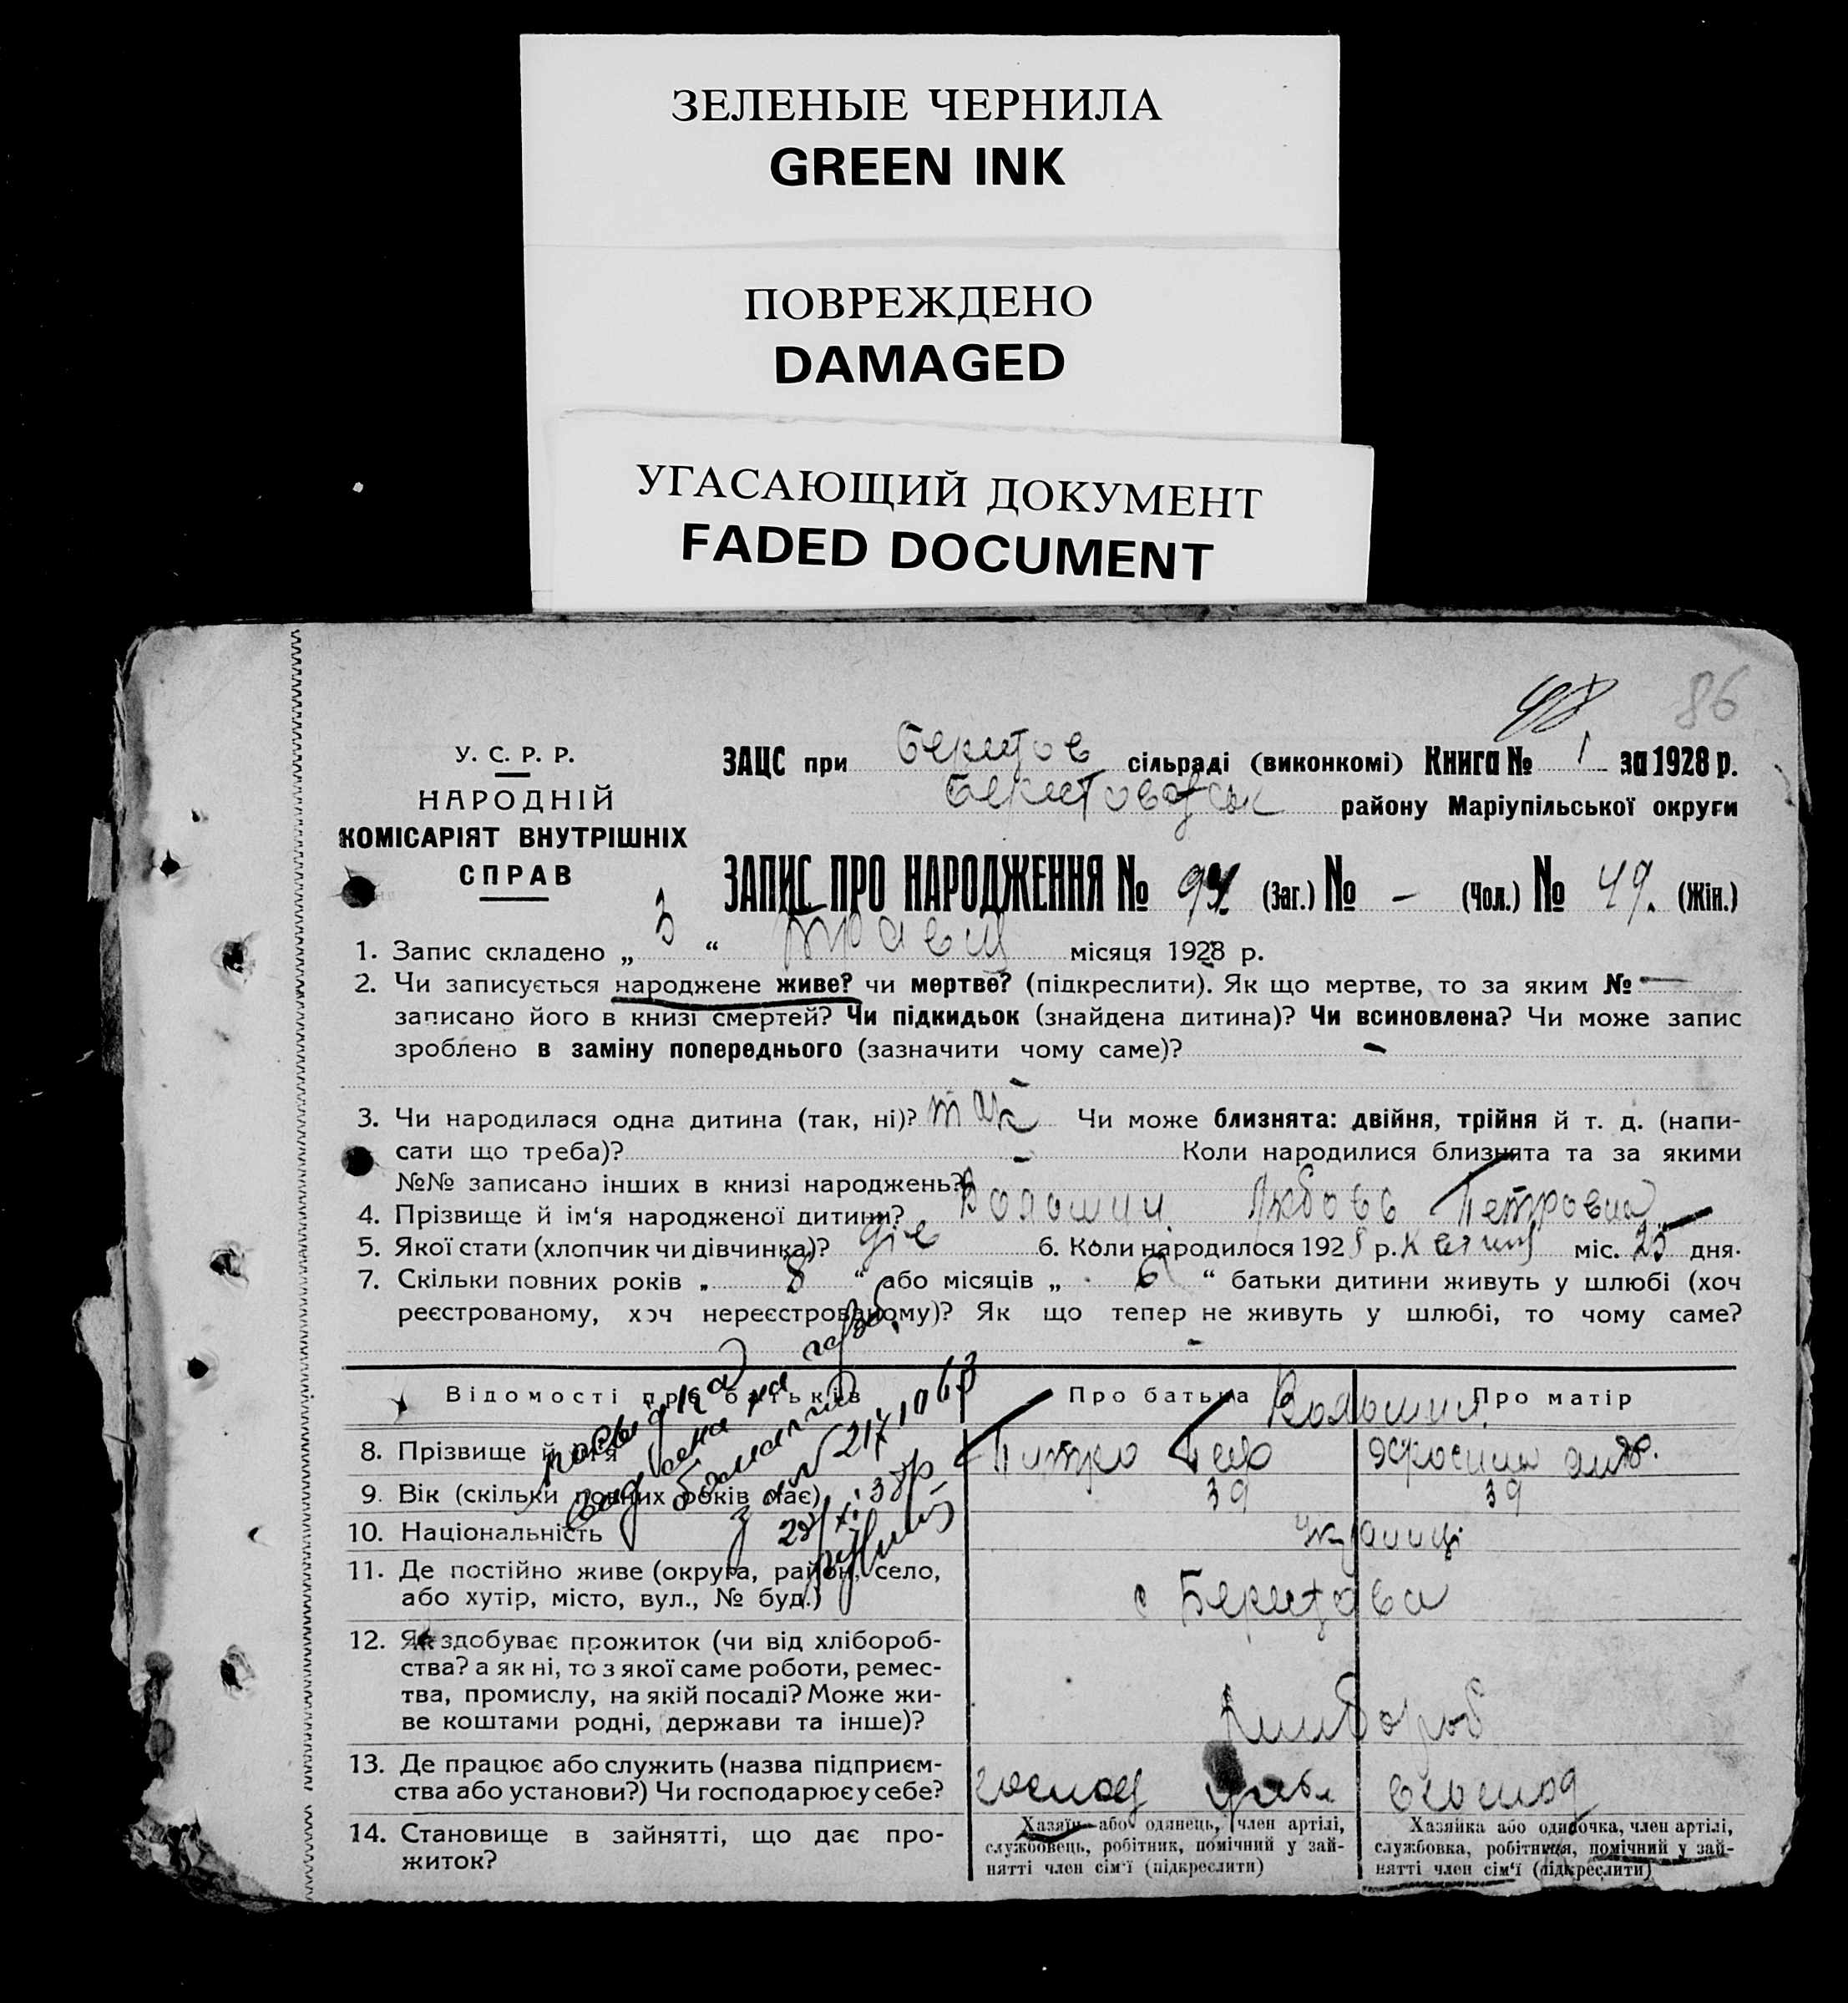 ЗЕЛЕНЫЕ ЧЕРНИЛА
GREEN INK
ПОВРЕЖДЕНО
DAMAGED
УГАСАЮЩИЙ ДОКУМЕНТ
FADED DOCUMENT
86
У. С. Р. Р.
НАРОДНІЙ
КОМІСАРІЯТ ВНУТРІШНІХ
СПРАВ
ЗАЦС при Берестов сільраді (виконкомі) Книга № 1 за 1928 р.
району Маріупільської округи
ЗАПИС ПРО НАРОДЖЕННЯ № (Заг.) № – (Чол.) № 49. (Жін.)
1. Запис складено „ 3 “ травня місяця 1928 р.
2. Чи записується народжене живе? чи мертве? (підкреслити). Як що мертве, то за яким № —
записано його в книзі смертей? Чи підкидьок (знайдена дитина)? Чи всиновлена? Чи може запис
зроблено в заміну попереднього (зазначити чому саме)? -
3. Чи народилася одна дитина (так, ні)? так Чи може близнята: двійня, трійня й т. д. (напи-
сати що треба)? - Коли народилися близнята та за якими
№№ записано інших в книзі народжень?
4. Прізвище й ім‘я народженої дитини? Волошин Любовь Петровна
5. Якої стати (хлопчик чи дівчинка)? дів 6. Коли народилося 1928 р. квітня міс. 25 дня.
7. Скільки повних років „ 8 “ або місяців „ 6 “ батьки дитини живуть у шлюбі (хоч
реєстрованому, хоч нереєстрованому)? Як що тепер не живуть у шлюбі, то чому саме?
-
Відомості про батьків Про батька Волошин Про матір
8. Прізвище й ім‘я Питро
9. Вік (скільки повних років має) 39 39
10. Національність Українці
11. Де постійно живе (округа, район, село,
або хутір, місто, вул., № буд.) с Берестова
12. Як здобуває прожиток (чи від хлібороб-
ства? а як ні, то з якої саме роботи, ремес-
тва, промислу, на якій посаді? Може жи-
ве коштами родні, держави та інше)?
Хлибороб
13. Де працює або служить (назва підприєм-
ства або установи?) Чи господарює у себе?
14. Становище в зайнятті, що дає про-
житок?
Хазяїн або одинець, член артілі,
службовець, робітник, помічний у зай-
нятті член сім‘ї (підкреслити)
Хазяйка або одиночка, член артілі,
службовка, робітниця, помічний у зай-
нятті член сім‘ї (підкреслити)